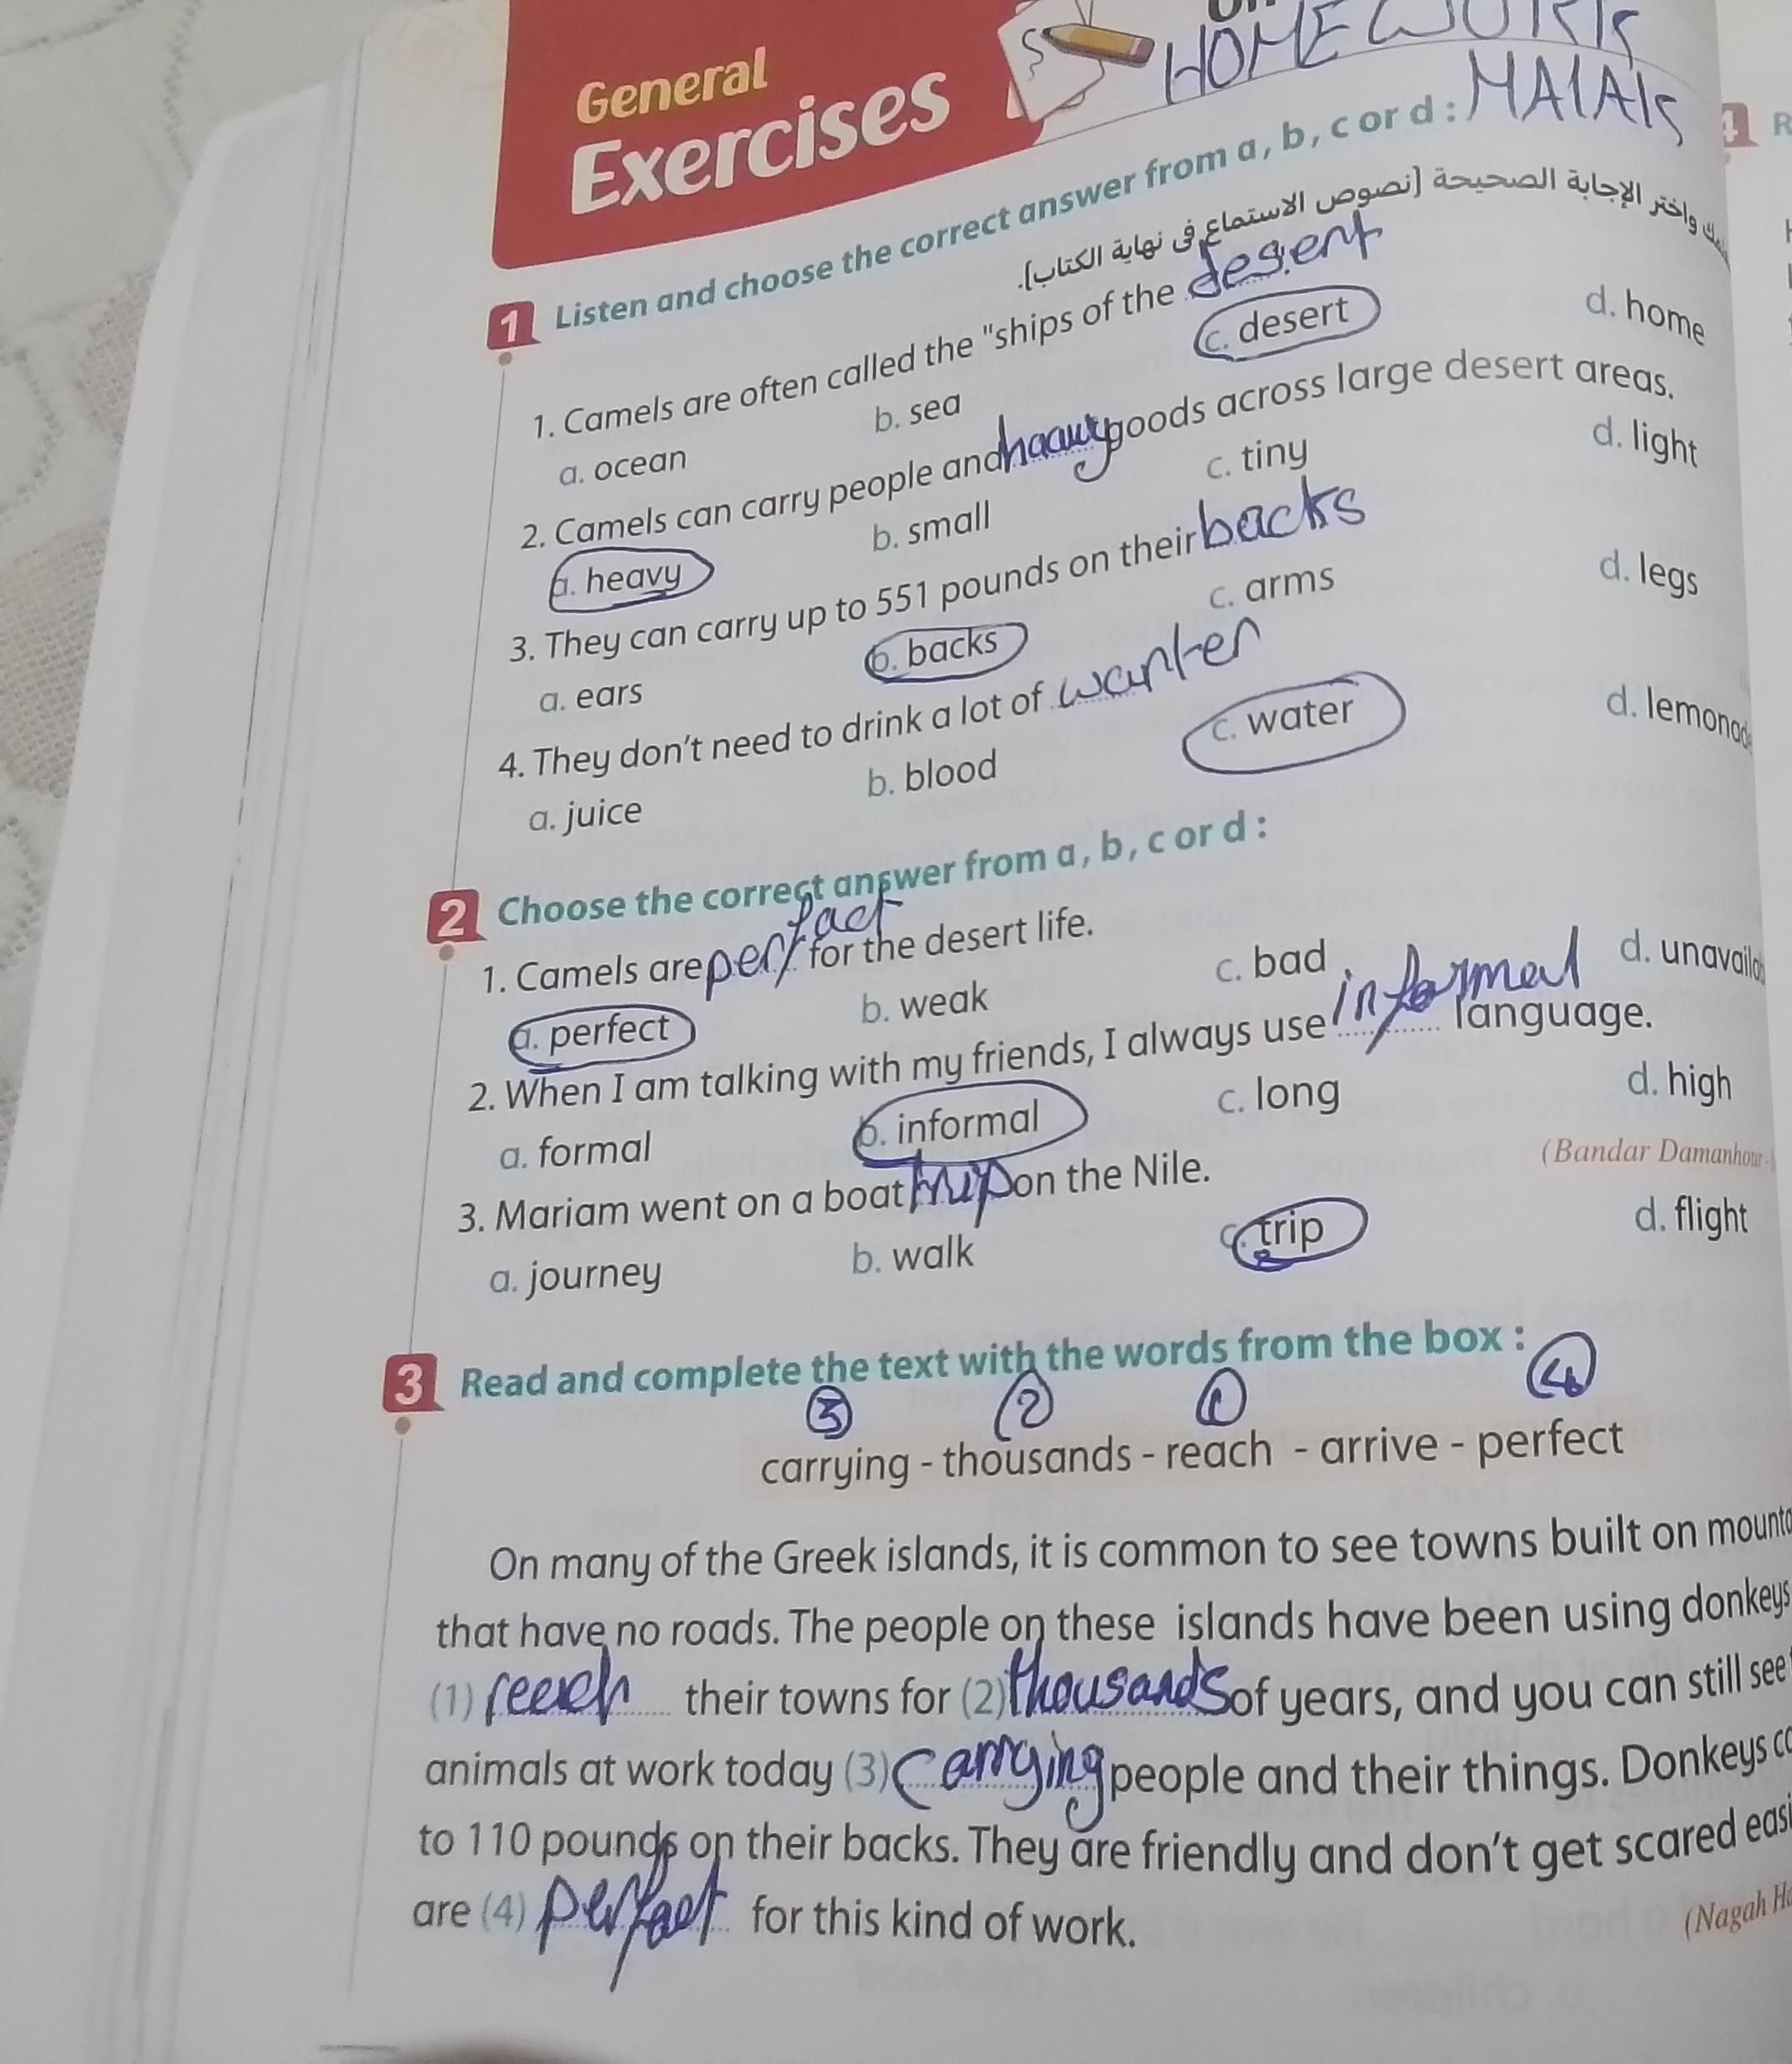 HOMEWORK
MALAK
General
Exercises
1 Listen and choose the correct answer from a, b, c or d :
واختر الإجابة الصحيحة (نصوص الاستماع فى نهاية الكتاب).
1. Camels are often called the "ships of the desert
a. ocean b. sea c. desert d. home
2. Camels can carry people and goods across large desert areas.
a. heavy b. small c. tiny d. light
3. They can carry up to 551 pounds on their backs
a. ears b. backs c. arms d. legs
4. They don't need to drink a lot of wanter
a. juice b. blood c. water d. lemonad
2 Choose the correct answer from a, b, c or d :
1. Camels are perfact for the desert life.
a. perfect b. weak c. bad d. unavaila
2. When I am talking with my friends, I always use informal language.
a. formal b. informal c. long d. high
(Bandar Damanhour
3. Mariam went on a boat trip on the Nile.
a. journey b. walk c. trip d. flight
3 Read and complete the text with the words from the box :
3 2 1 4
carrying - thousands - reach - arrive - perfect
On many of the Greek islands, it is common to see towns built on mounta
that have no roads. The people on these islands have been using donkeys
(1) reech their towns for (2) thousands of years, and you can still see
animals at work today (3) carrying people and their things. Donkeys ca
to 110 pounds on their backs. They are friendly and don't get scared easi
are (4) perfact for this kind of work.
(Nagah Ha
4 R